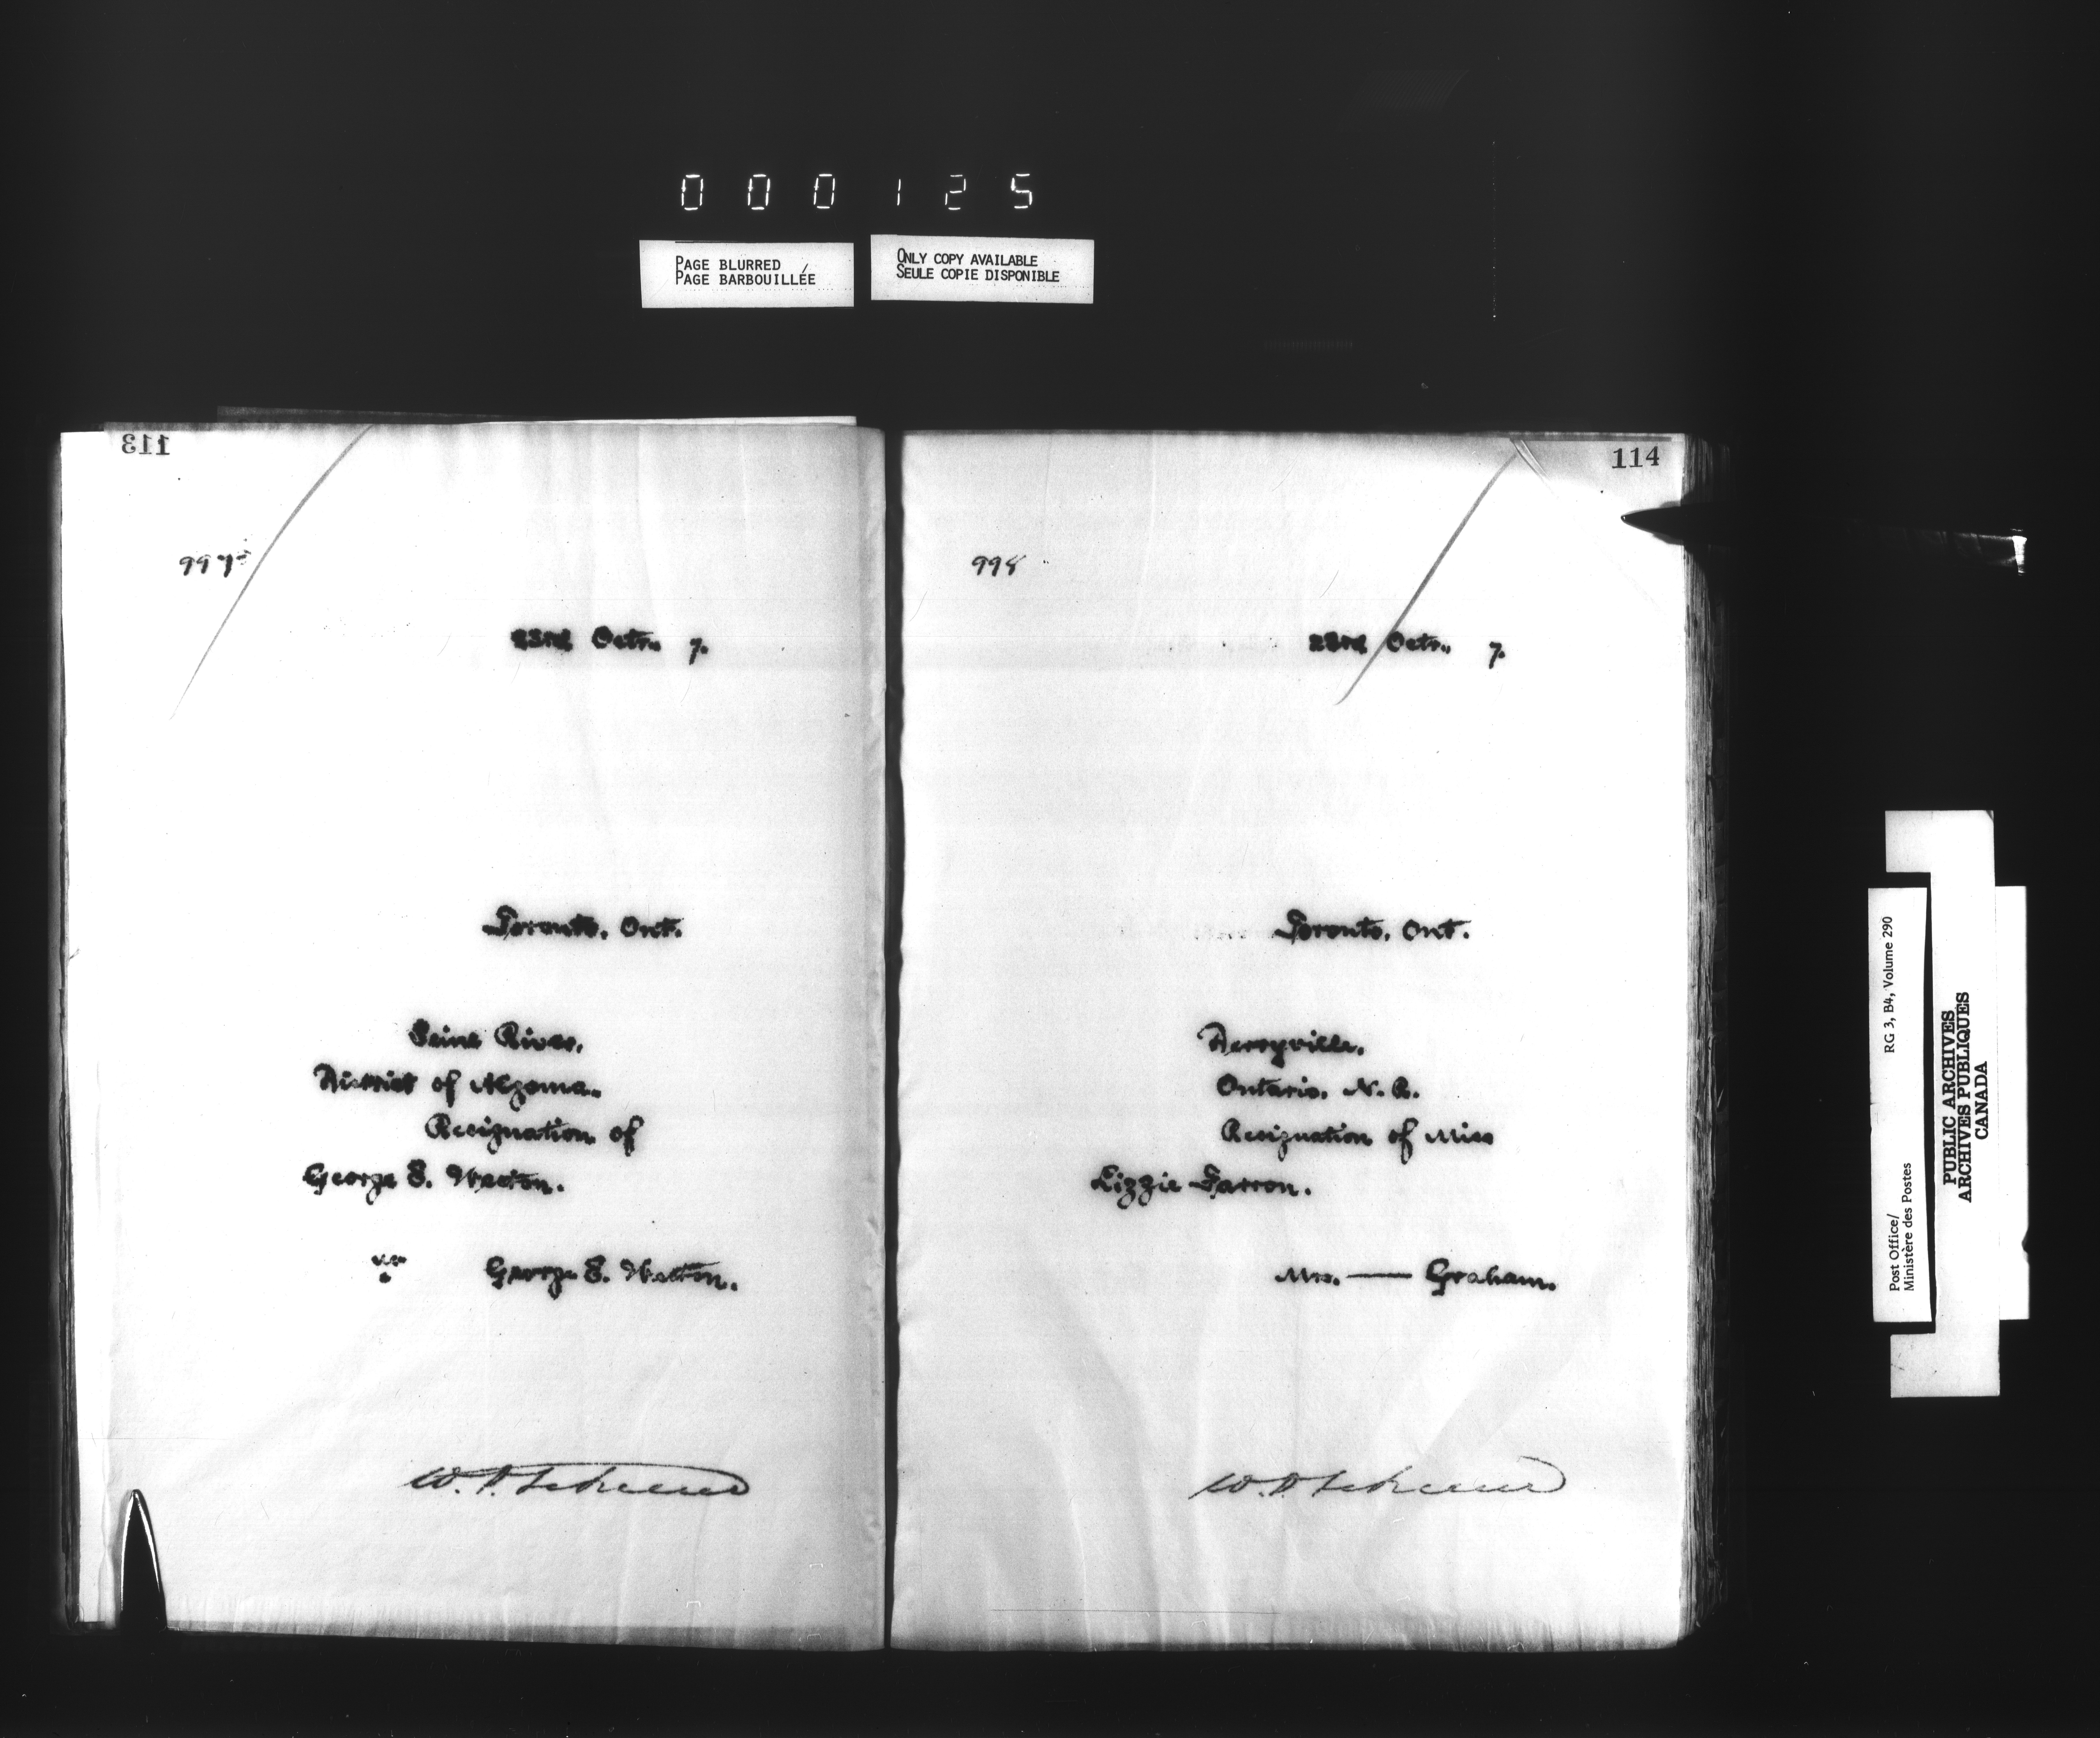 000125
PAGE BLURRED
PAGE BARBOUILLÉE
ONLY COPY AVAILABLE
SEULE COPIE DISPONIBLE
113
997
23rd Octr. 7.
Toronto, Ont.
Seine River,
District of Algoma.
Resignation of
George E.
George E.
114
998
23rd Octr. 7.
Toronto, Ont.
Derryville,
Ontario, N. R.
Resignation of Miss
Lizzie Farron.
Mrs. — Graham.
RG 3, B4, Volume 290
Post Office/
Ministère des Postes
PUBLIC ARCHIVES
ARCHIVES PUBLIQUES
CANADA